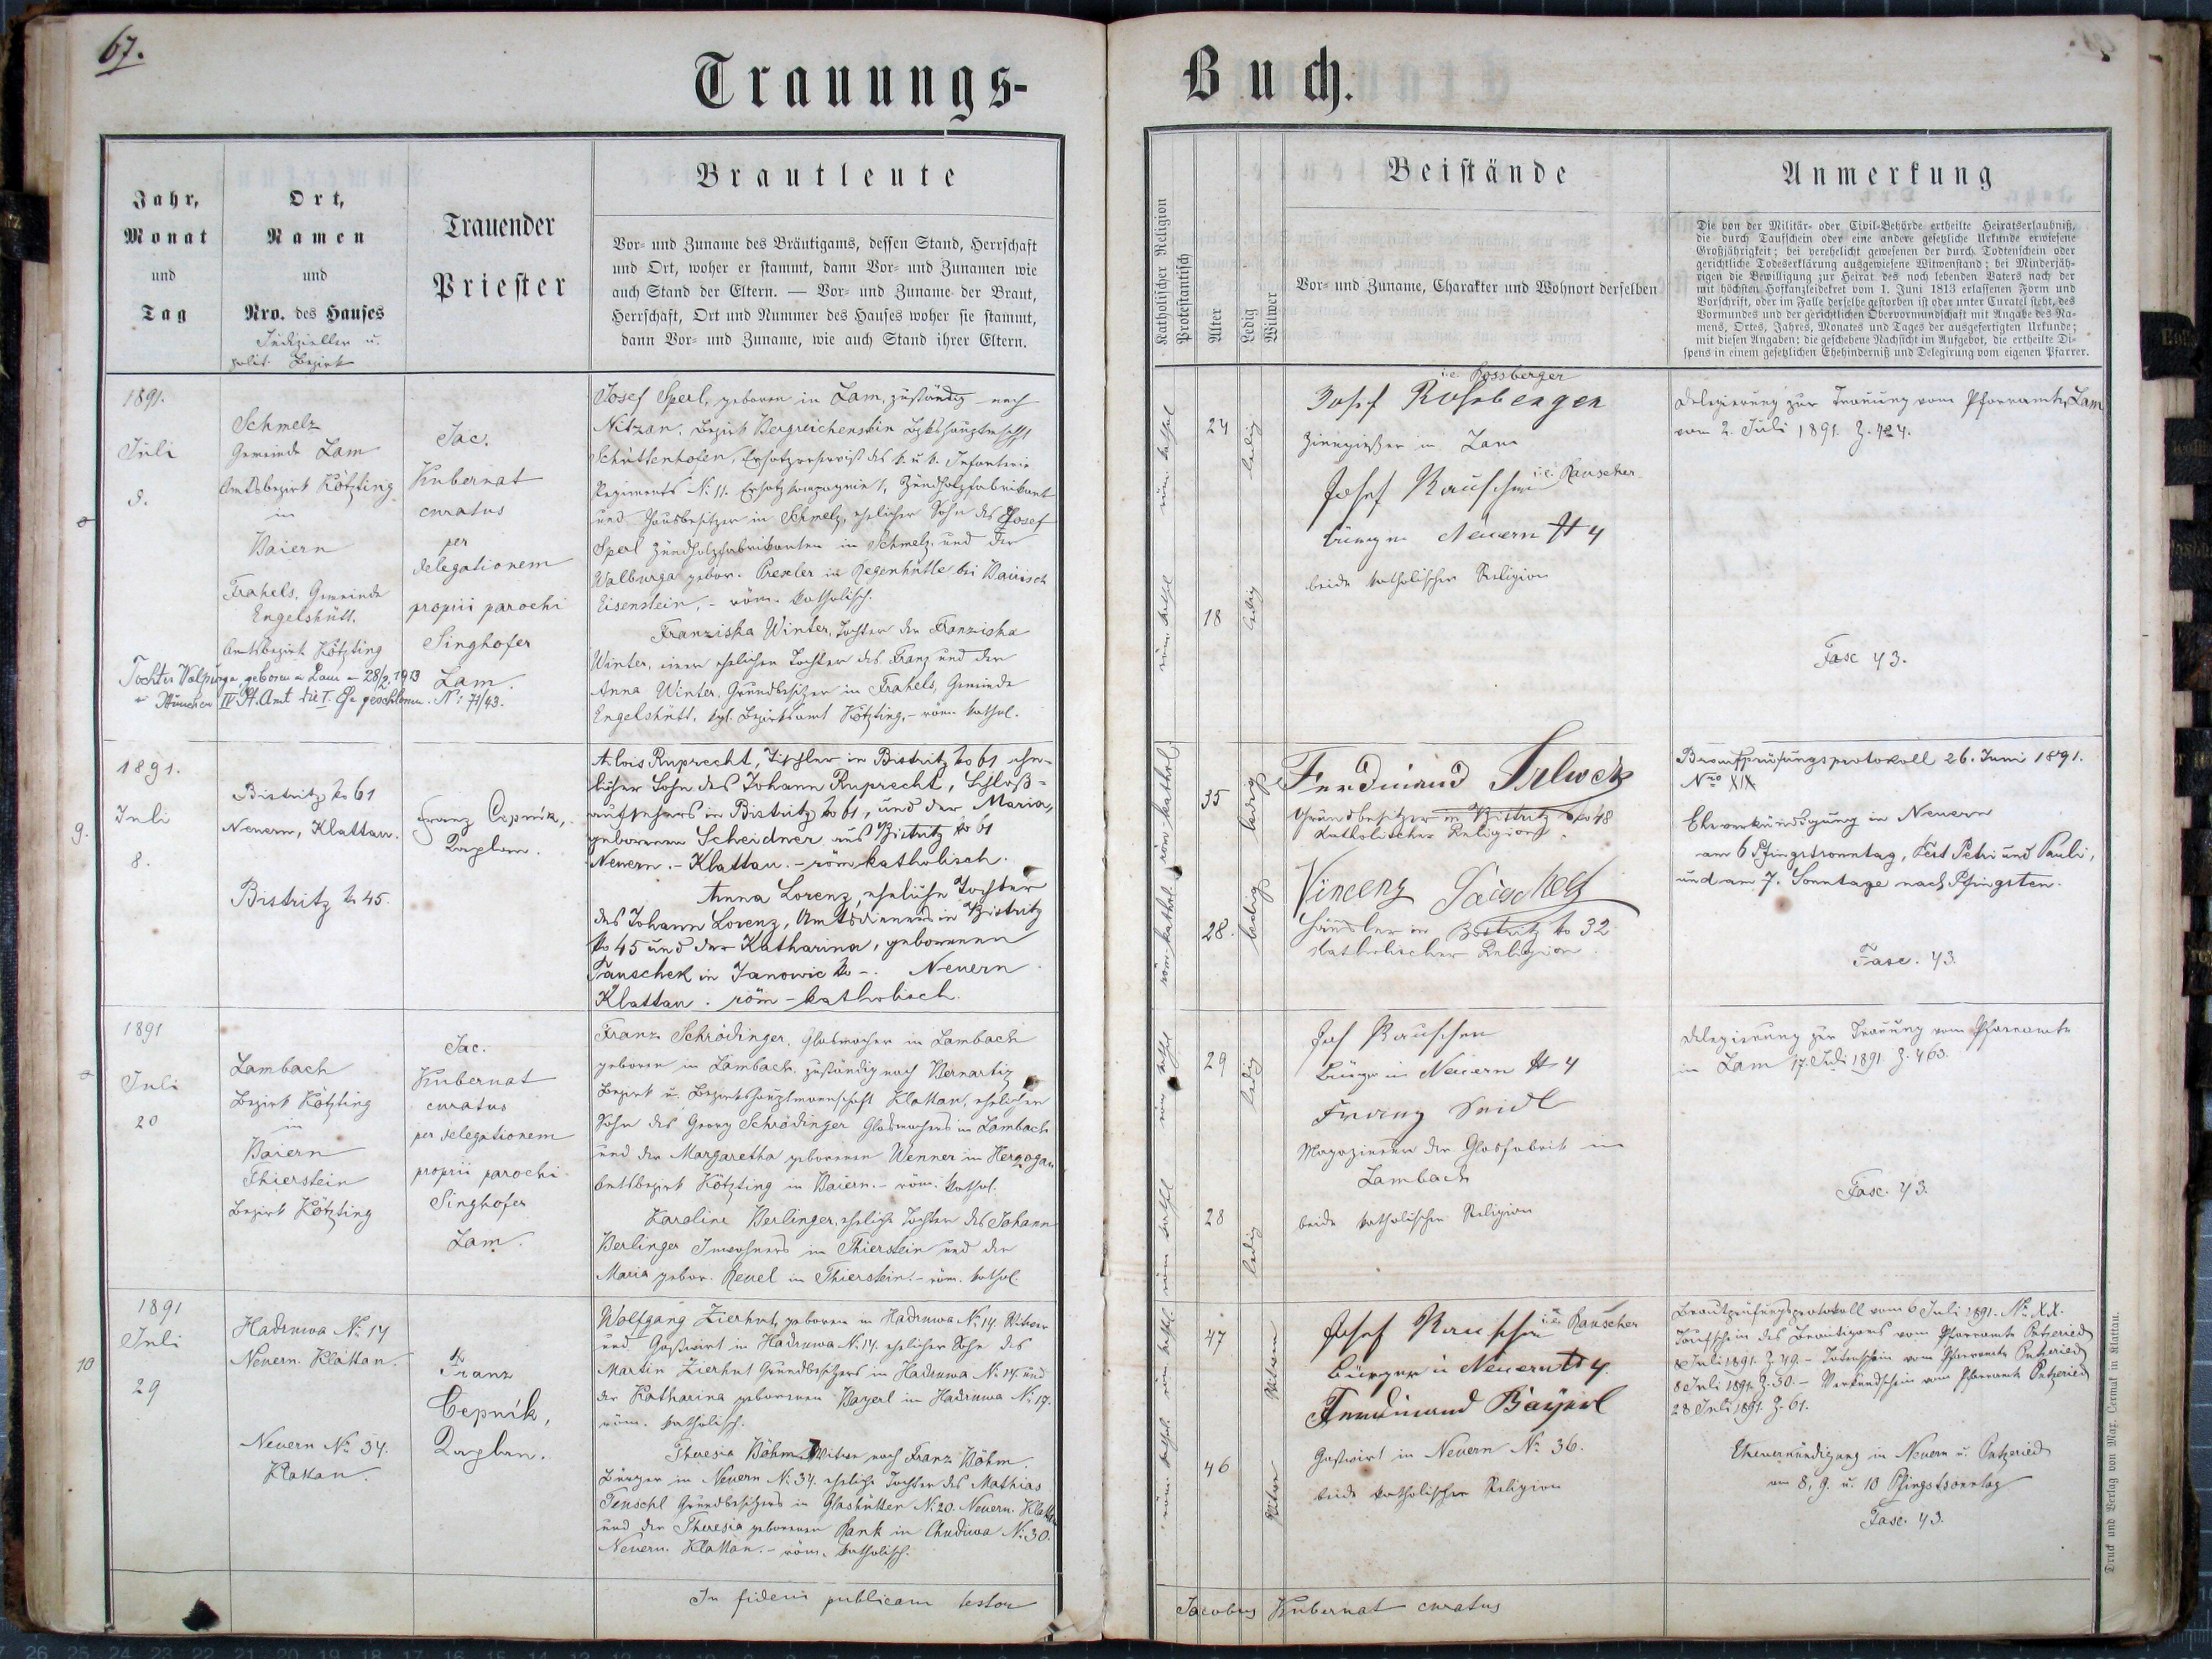 67.
Trauungs-
Buch.
Jahr,
Monat
und
Tag
Ort,
Namen
und
Nro. des Hauses
Judizieller u.
polit. Bezirk
Trauender
Priester
Brautleute
Vor- und Zuname des Bräutigams, dessen Stand, Herrschaft
und Ort, woher er stammt, dann Vor- und Zunamen wie
auch Stand der Eltern. — Vor- und Zuname der Braut,
Herrschaft, Ort und Nummer des Hauses woher sie stammt,
dann Vor- und Zuname, wie auch Stand ihrer Eltern.
Katholischer Religion
Protestantisch
Alter
Ledig
Witwer
Beistände
Vor- und Zuname, Charakter und Wohnort derselben
Anmerkung
Die von der Militär- oder Civil-Behörde ertheilte Heiratserlaubniß,
die durch Taufschein oder eine andere gesetzliche Urkunde erwiesene
Großjährigkeit; bei verehelicht gewesenen der durch Todtenschein oder
gerichtliche Todeserklärung ausgewiesene Witwenstand; bei Minderjäh-
rigen die Bewilligung zur Heirat des noch lebenden Vaters nach der
mit höchsten Hofkanzleidekret vom 1. Juni 1813 erlassenen Form und
Vorschrift, oder im Falle derselbe gestorben ist oder unter Curatel steht, des
Vormundes und der gerichtlichen Obervormundschaft mit Angabe des Na-
mens, Ortes, Jahres, Monates und Tages der ausgefertigten Urkunde;
mit diesen Angaben; die geschehene Nachsicht im Aufgebot, die ertheilte Di-
spens in einem gesetzlichen Ehehinderniß und Delegirung vom eigenen Pfarrer.
1891.
Juli
8.
Schmelz
Gemeinde Lam
Amtsbezirk Kötzting
in
Baiern
Frahels, Gemeinde
Engelshütt.
Amtsbezirk Kötzting
Jac.
Kubernat
curatus
per
delegationem
proprii parochi
Singhofer
Lam.
Tochter Walpurga, geboren in Lam – 28/2. 1913
in München IV St. Amt die I. Ehe geschlossen. Nº: 71/43.
Josef Sperl, geboren in Lam, zuständig nach
Nitzau, Bezirk Bergreichenstein Bzkshauptmschft
Schüttenhofen, Ersatzreservist des k. u k. Infanterie
Regiments Nº 11. Ersatzkompagnie 1, Zündholzfabrikant
und Hausbesitzer in Schmelz, ehelicher Sohn des Josef
Sperl Zündholzfabrikanten in Schmelz und der
Walburga gebor. Prexler in Regenhütte bei Bairisch
Eisenstein, – röm. katholisch.
Franziska Winter, Tochter der Franziska
Winter, einer ehelichen Tochter des Franz und der
Anna Winter, Grundbesitzer in Frahels, Gemeinde
Engelshütt, kgl. Bezirksamt Kötzting, – röm kathol.
24
18
röm. kathol
ledig
röm. kathol
ledig
i.e. Rossberger
Josef Roßberger
Zinngießer in Lam
Josef Rauscher i.e. Rauscher
Bürger Neuern № 4
beide katholischer Religion
Delegierung zur Trauung vom Pfarramte Lam
vom 2. Juli 1891. Z. 424.
Fasc 43.
9.
1891.
Juli
8.
Bistritz № 61
Neuern, Klattau.
Bistritz № 45.
Franz Cepnik,
Kaplan.
Alois Ruprecht, Tischler in Bistritz № 61 ehe-
licher Sohn des Johann Ruprecht, Schloß-
aufsehers in Bistritz № 61, und der Maria,
geborenen Scheidner aus Bistritz № 61
Neuern. – Klattau. – röm katholisch.
Anna Lorenz, eheliche Tochter
des Johann Lorenz, Amtsdieners in Bistritz
№ 45 und der Katharina, geborenen
Tauschek in Janowic № –. Neuern
Klattau. röm – katholisch.
35
28.
röm kathol.
ledig
röm kathol
ledig
Ferdinand
Grundbesitzer in Bistritz № 48
Katholischer Religion.
Vincenz
Häusler in Bistritz № 32
Katholischer Religion.
Brautprüfungsprotokoll 26. Juni 1891.
Nro XIX
Eheverkündigung in Neuern
am 6 Pfingstsonntag, Fest Petri und Pauli,
und am 7. Sonntage nach Pfingsten.
Fasc. 43.
1891
Juli
20
Lambach
Bezirk Kötzting
in
Baiern
Thierstein
Bezirk Kötzting
Jac.
Kubernat
curatus
per delegationem
proprii parochi
Singhofer
Lam.
Franz Schrödinger, Glasmacher in Lambach
geboren in Lambach, zuständig nach Bernartiz
Bezirk u. Bezirkshauptmannschaft Klattau, ehelicher
Sohn des Georg Schrödinger Glasmachers in Lambach
und der Margaretha geborenen Wenner in Herzogau
Amtsbezirk Kötzting in Baiern. – röm. kathol.
Karolina Berlinger, eheliche Tochter des Johann
Berlinger Inwohners in Thierstein und der
Maria gebor. Reuel in Thierstein. – röm. kathol.
29
28
röm kathol
ledig
röm kathol
ledig
Jos Rauscher
Bürger in Neuern № 4
Franz Seidl
Magazineur der Glasfabrik in
Lambach
beide katholischer Religion
Delegierung zur Trauung vom Pfarramte
in Lam 17. Juli 1891 Z. 463.
Fasc. 43.
10
1891
Juli
29
Hadruwa Nº 14
Neuern. Klattau.
Neuern Nº 34.
Klattau.
Franz
Cepnik,
Kaplan.
Wolfgang Zierhut, geboren in Hadruwa Nº 14. Witwer
und Gastwirt in Hadruwa Nº 14. ehelicher Sohn des
Martin Zierhut Grundbesitzers in Hadruwa Nº 14. und
der Katharina geborenen Bayerl in Hadruwa Nº 17.
röm. katholisch.
Theresia Böhm Witwe nach Franz Böhm.
Bürger in Neuern Nº 34. eheliche Tochter des Mathias
Tenschl Grundbesitzers in Glashütten Nº 20. Neuern. Klattau
und der Theresia geborenen Rank in Chudiwa Nº 30.
Neuern. Klattau. – röm. katholisch.
47
46
röm. kathol.
Witwer
röm. kathol.
Witwe
Josef Rauscher i.e. Rauscher
Bürger in Neuern № 4.
Ferdinand Bayerl
Gastwirt in Neuern Nº 36.
beide katholischer Religion
Brautprüfungsprotokoll vom 6 Juli 1891. Nº XX.
Taufschein des Bräutigams vom Pfarramte Petzeried
8 Juli 1891. Z. 49. – Totenschein vom Pfarramte Petzeried
8 Juli 1891. Z. 50. – Verkündschein vom Pfarramte Petzeried
28 Juli 1891. Z. 61.
Eheverkündigung in Neuern u. Petzeried
am 8, 9. u. 10 Pfingstsonntag
Fasc. 43.
In fidem publicam testor
Jacobus Kubernat curatus
Druck und Verlag von Max. Čermak in Klattau.